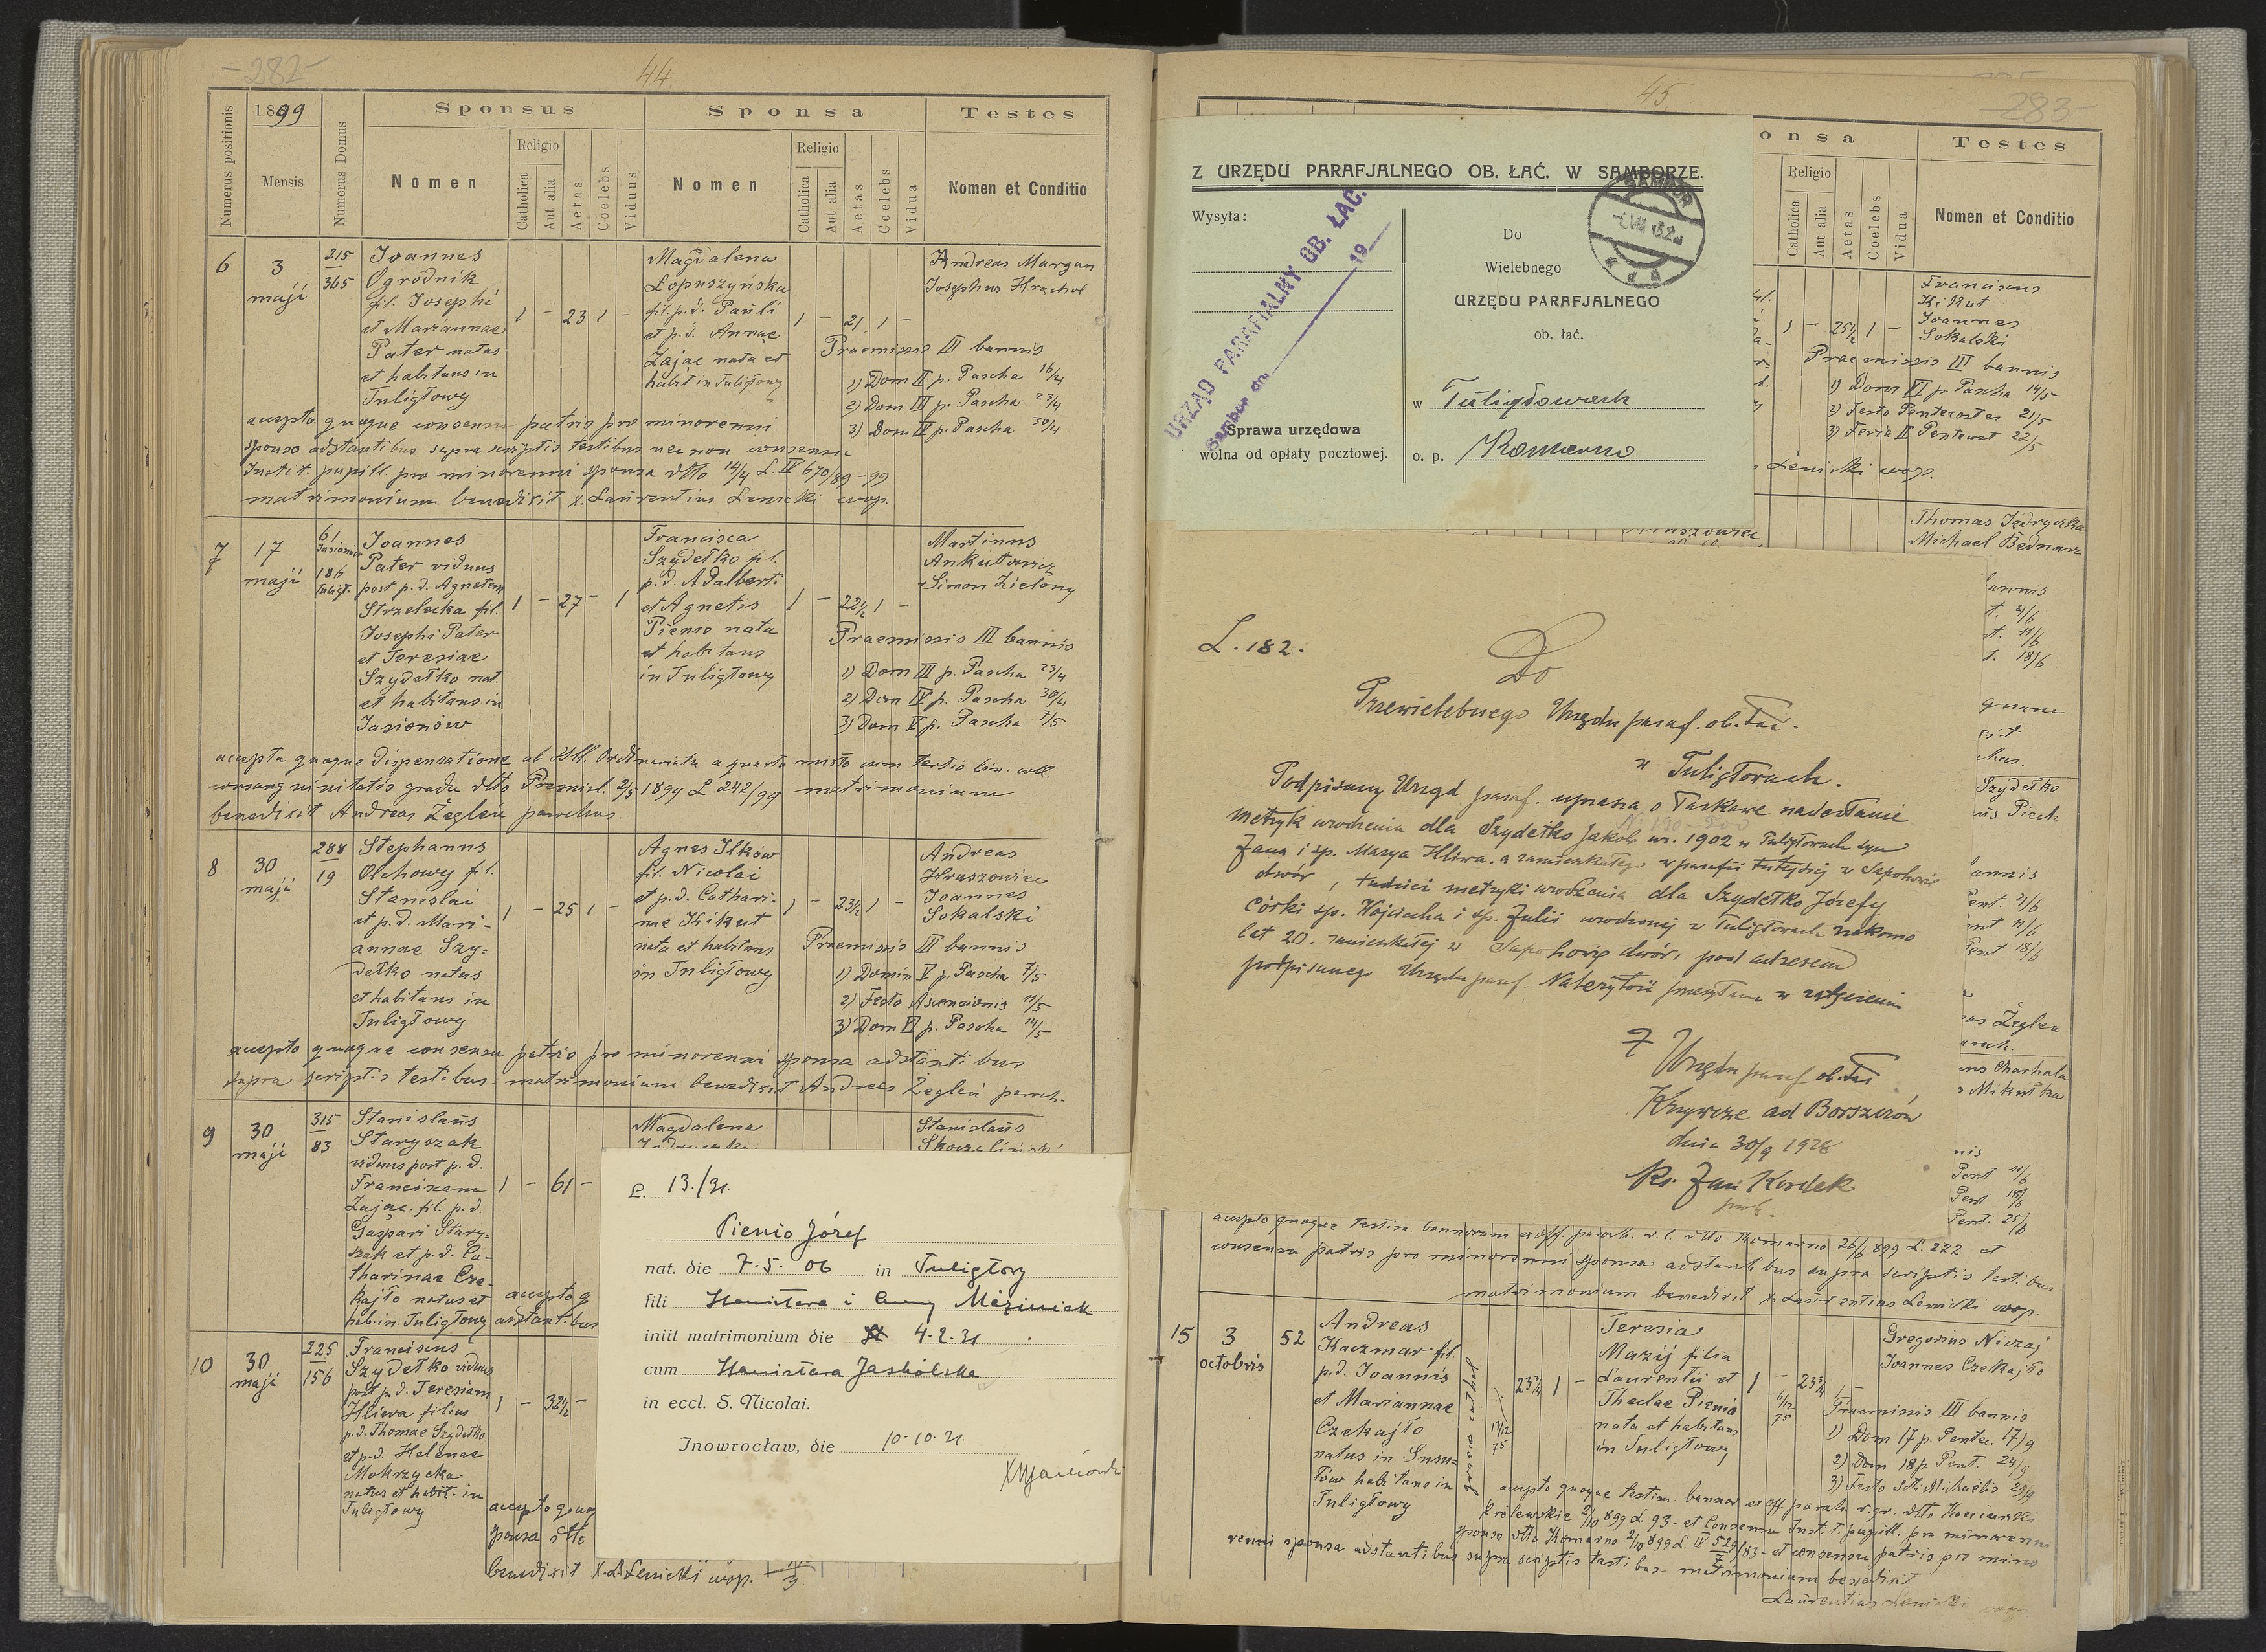 -282-
44.
Numerus positionis
1899
Mensis
Numerus Domus
Sponsus
Sponsa
Testes
Nomen
Religio
Catholica
Aut alia
Aetas
Coelebs
Viduus
Nomen
Religio
Catholica
Aut alia
Aetas
Coelebs
Vidua
Nomen et Conditio
6
3
maji
215
365
Joannes
Ogrodnik
fil. Josephi
et Mariannae
Pater natus
et habitans in
Tuligłowy
1 - 23 1 -
Magdalena
Łopuszyńska
fil. p.d. Pauli
et p.d. Annae
Zając nata et
habit in Tuligłowy
1 - 21 1 -
Andreas Margan
Josephus Hrachol
Praemissis III bannis
1) Dom II p. Pascha 16/4
2) Dom III p. Pascha 23/4
3) Dom IV p. Pascha 30/4
accepto quoque consensu patris pro minorenni
sponso adstantibus supra scriptis testibus nec non consensu
Instit. pupill. pro minorenni sponsa dtto 14/4 L. IV 670/89-99
matrimonium benedixit x. Laurentius Lenicki coop.
7
17
maji
61
Jasionów
186
Tuligł.
Joannes
Pater viduus
post p.d. Agnetem
Strzelecka fil.
Josephi Pater
et Teresiae
Szydełko nat.
et habitans in
Jasionów
1 - 27 - 1
Francisca
Szydełko fil.
p.d. Adalberti
et Agnetis
Pienio nata
et habitans
in Tuligłowy
1 - 22½ 1 -
Martinus
Ankutowicz
Simon Zielony
Praemissis III bannis
1) Dom III p. Pascha 23/4
2) Dom IV p. Pascha 30/4
3) Dom V p. Pascha 7/5
accepta quoque dispensatione ab Ill. Ordinariatu a quarto misto cum tertio lin. coll.
consanguinitatis gradu dtto Przemisl. 2/5 1899 L 242/99 matrimonium
benedixit Andreas Żegleń parochus.
8
30
maji
288
19
Stephanus
Olchowy fil.
Stanislai
et p.d. Mari-
annae Szy-
dełko natus
et habitans in
Tuligłowy
1 - 25 1 -
Agnes Ilków
fil. Nicolai
et p.d. Cathari-
nae Kikut
nata et habitans
in Tuligłowy
1 - 23½ 1 -
Andreas
Hruszowiec
Joannes
Sokalski
Praemissis III bannis
1) Domin V p. Pascha 7/5
2) Festo Ascensionis 11/5
3) Dom VI p. Pascha 14/5
accepto quoque consensu patris pro minorenni sponsa adstantibus
supra scriptis testibus matrimonium benedixit Andreas Żegleń paroch.
9
30
maji
315
83
Stanislaus
Staryszak
viduus post p.d.
Franciscam
Zając fil. p.d.
Gaspari Stary-
szak et p.d. Ca-
tharinae Cze-
kajło natus et
hab. in Tuligłowy
1 - 61 -
Magdalena
Stanislaus
accepto q
adstantibus
10
30
maji
225
156
Franciscus
Szydełko viduus
post p.d. Teresiam
Hliwa filius
p.d. Thomae Szydełko
et p.d. Helenae
Mokrzycka
natus et habit. in
Tuligłowy
1 - 32½ -
accepto quoq
sponsa dtto
benedixit x. L. Lenicki coop.
L. 13./31.
Pienio Józef
nat. die 7. 5. 06 in Tuligłowy
fili Stanisława i Anny Meziniak
iniit matrimonium die 4. 2. 31
cum Stanisława Jaskólska
in eccl. S. Nicolai.
Inowrocław, die 10. 10. 31.
45.
-283-
Z URZĘDU PARAFJALNEGO OB. ŁAĆ. W SAMBORZE.
Wysyła:
URZĄD PARAFIALNY OB. ŁAC.
Sambor dn. 19
SAMBOR
Do
Wielebnego
URZĘDU PARAFJALNEGO
ob. łać.
w Tuligłowach
Sprawa urzędowa
wolna od opłaty pocztowej.
o. p. Komarno
onsa
Testes
Religio
Catholica
Aut alia
Aetas
Coelebs
Vidua
Nomen et Conditio
1 - 25½ 1 -
Franciscus
Kikut
Joannes
Sokalski
Praemissis III bannis
1) Dom VI p. Pascha 14/5
2) Festo Pentecostes 21/5
3) Feria II Pentecost 22/5
Lenicki coop.
Thomas Jędryszka
Michael Bednarz
L. 182.
Do
Przewielebnego Urzędu paraf. ob. łać.
w Tuligłowach.
Podpisany Urząd paraf. uprasza o łaskawe nadesłanie
metryk urodzenia dla Szydełko Jakób ur. 1902 w Tuligłowach syn
Jana i sp. Marya Hliwa. a zamieszkałego w parafii tutejszej w Sapohowie
dwór, tudzież metryki urodzenia dla Szydełko Józefy
córki sp. Wojciecha i sp. Julii urodzonej w Tuligłowach rzekomo
lat 20. zamieszkałej w Sapohowie dwór, pod adresem
podpisanego Urzędu paraf. Należytość przesyłam w załączeniu
Z
Urzędu paraf ob. łać
Krzywcze ad Borszczów
dnia 30/9 1928
Ks. Jan Kordek
prob.
annis
4/6
11/6
18/6
Szydełko
Piech
annis
Pent. 4/6
Pent 11/6
Pent 18/6
Żegleń
paroch.
Charhala
Mikutka
Pent 11/6
Pent 18/6
Pent. 25/6
accepto quoque testim. bannorum ex off. paroch. r. l. dtto Komarno 26/6 899 L. 222 et
consensu patris pro minorenni sponsa adstantibus supra scriptis testibus
matrimonium benedixit x. Laurentius Lenicki coop.
15
3
octobris
52
Andreas
Kaczmar fil.
p.d. Joannis
et Mariannae
Czekajło
natus in Susu-
łów habitans in
Tuligłowy
graeco cathol.
23¾ 1 -
13/12
75
Teresia
Mazij filia
Laurentii et
Theclae Pienio
nata et habitans
in Tuligłowy
1 - 23¾ 1 -
6/12
75
Gregorius Niczaj
Joannes Czekajło
Praemissis III bannis
1) Dom 17 p. Pentec. 17/9
2) Dom 18 p. Pent. 24/9
3) Festo Scti Michaelis 29/9
accepto quoque testim. bannor ex off paroch. r. gr. dtto
królewskie 2/10 899 L. 93 - et consensu Inst. t. pupill. pro minorenni
sponso dtto Komarno 2/10 899 L. IV 529/83 - et consensu patris pro mino
renni sponsa adstantibus supra scriptis testibus matrimonium benedixit
Laurentius Lenicki coop.